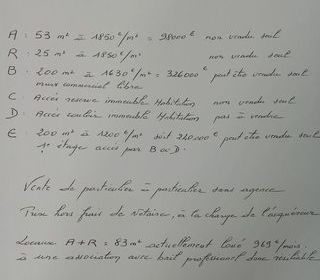 A : 53 m² à 1850 €/m² = 98000 € non vendu seul
R : 25 m² à 1850 €/m² non vendu seul
B : 200 m² à 1630 €/m² = 326000 € peut être vendu seul
murs commercial libre
C : Accès réserve immeuble Habitation non vendu seul
D : Accès couloir immeuble Habitation pas à vendre
E : 200 m² à 1200 €/m² soit 240.000 € peut être vendu seul
1er étage accès par B ou D.
Vente de particulier à particulier sans agence
Prix hors frais de Notaire, à la charge de l'acquéreur
Locaux A+R = 83 m² actuellement loué 969 €/mois
à une association avec bail professionnel donc résiliable